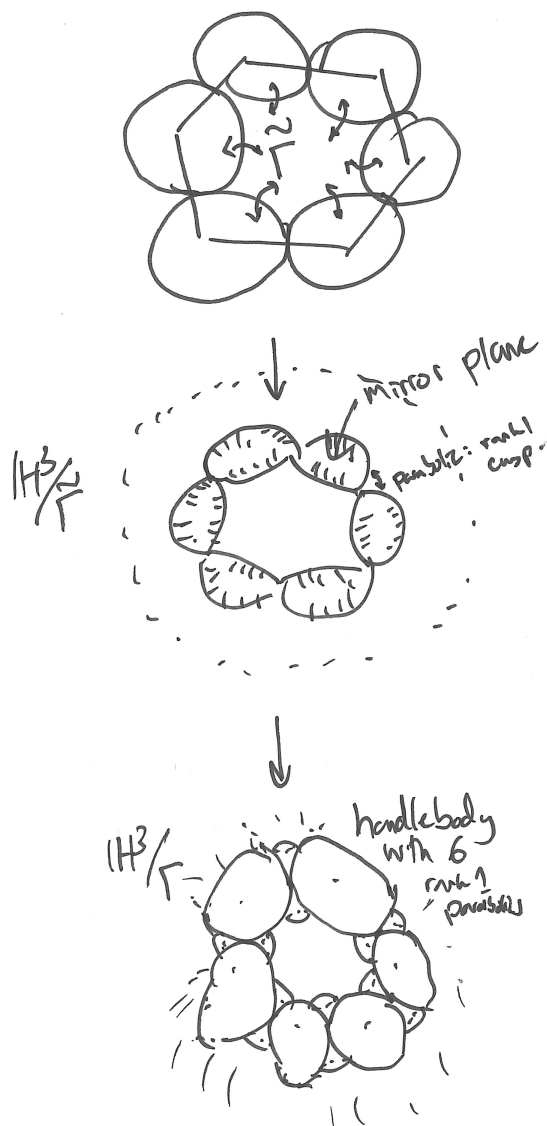 Γ̃
mirror plane
parabolic: rank 1
cusp
ℍ³/Γ̃
handlebody
with 6
rank 1
parabolics
ℍ³/Γ